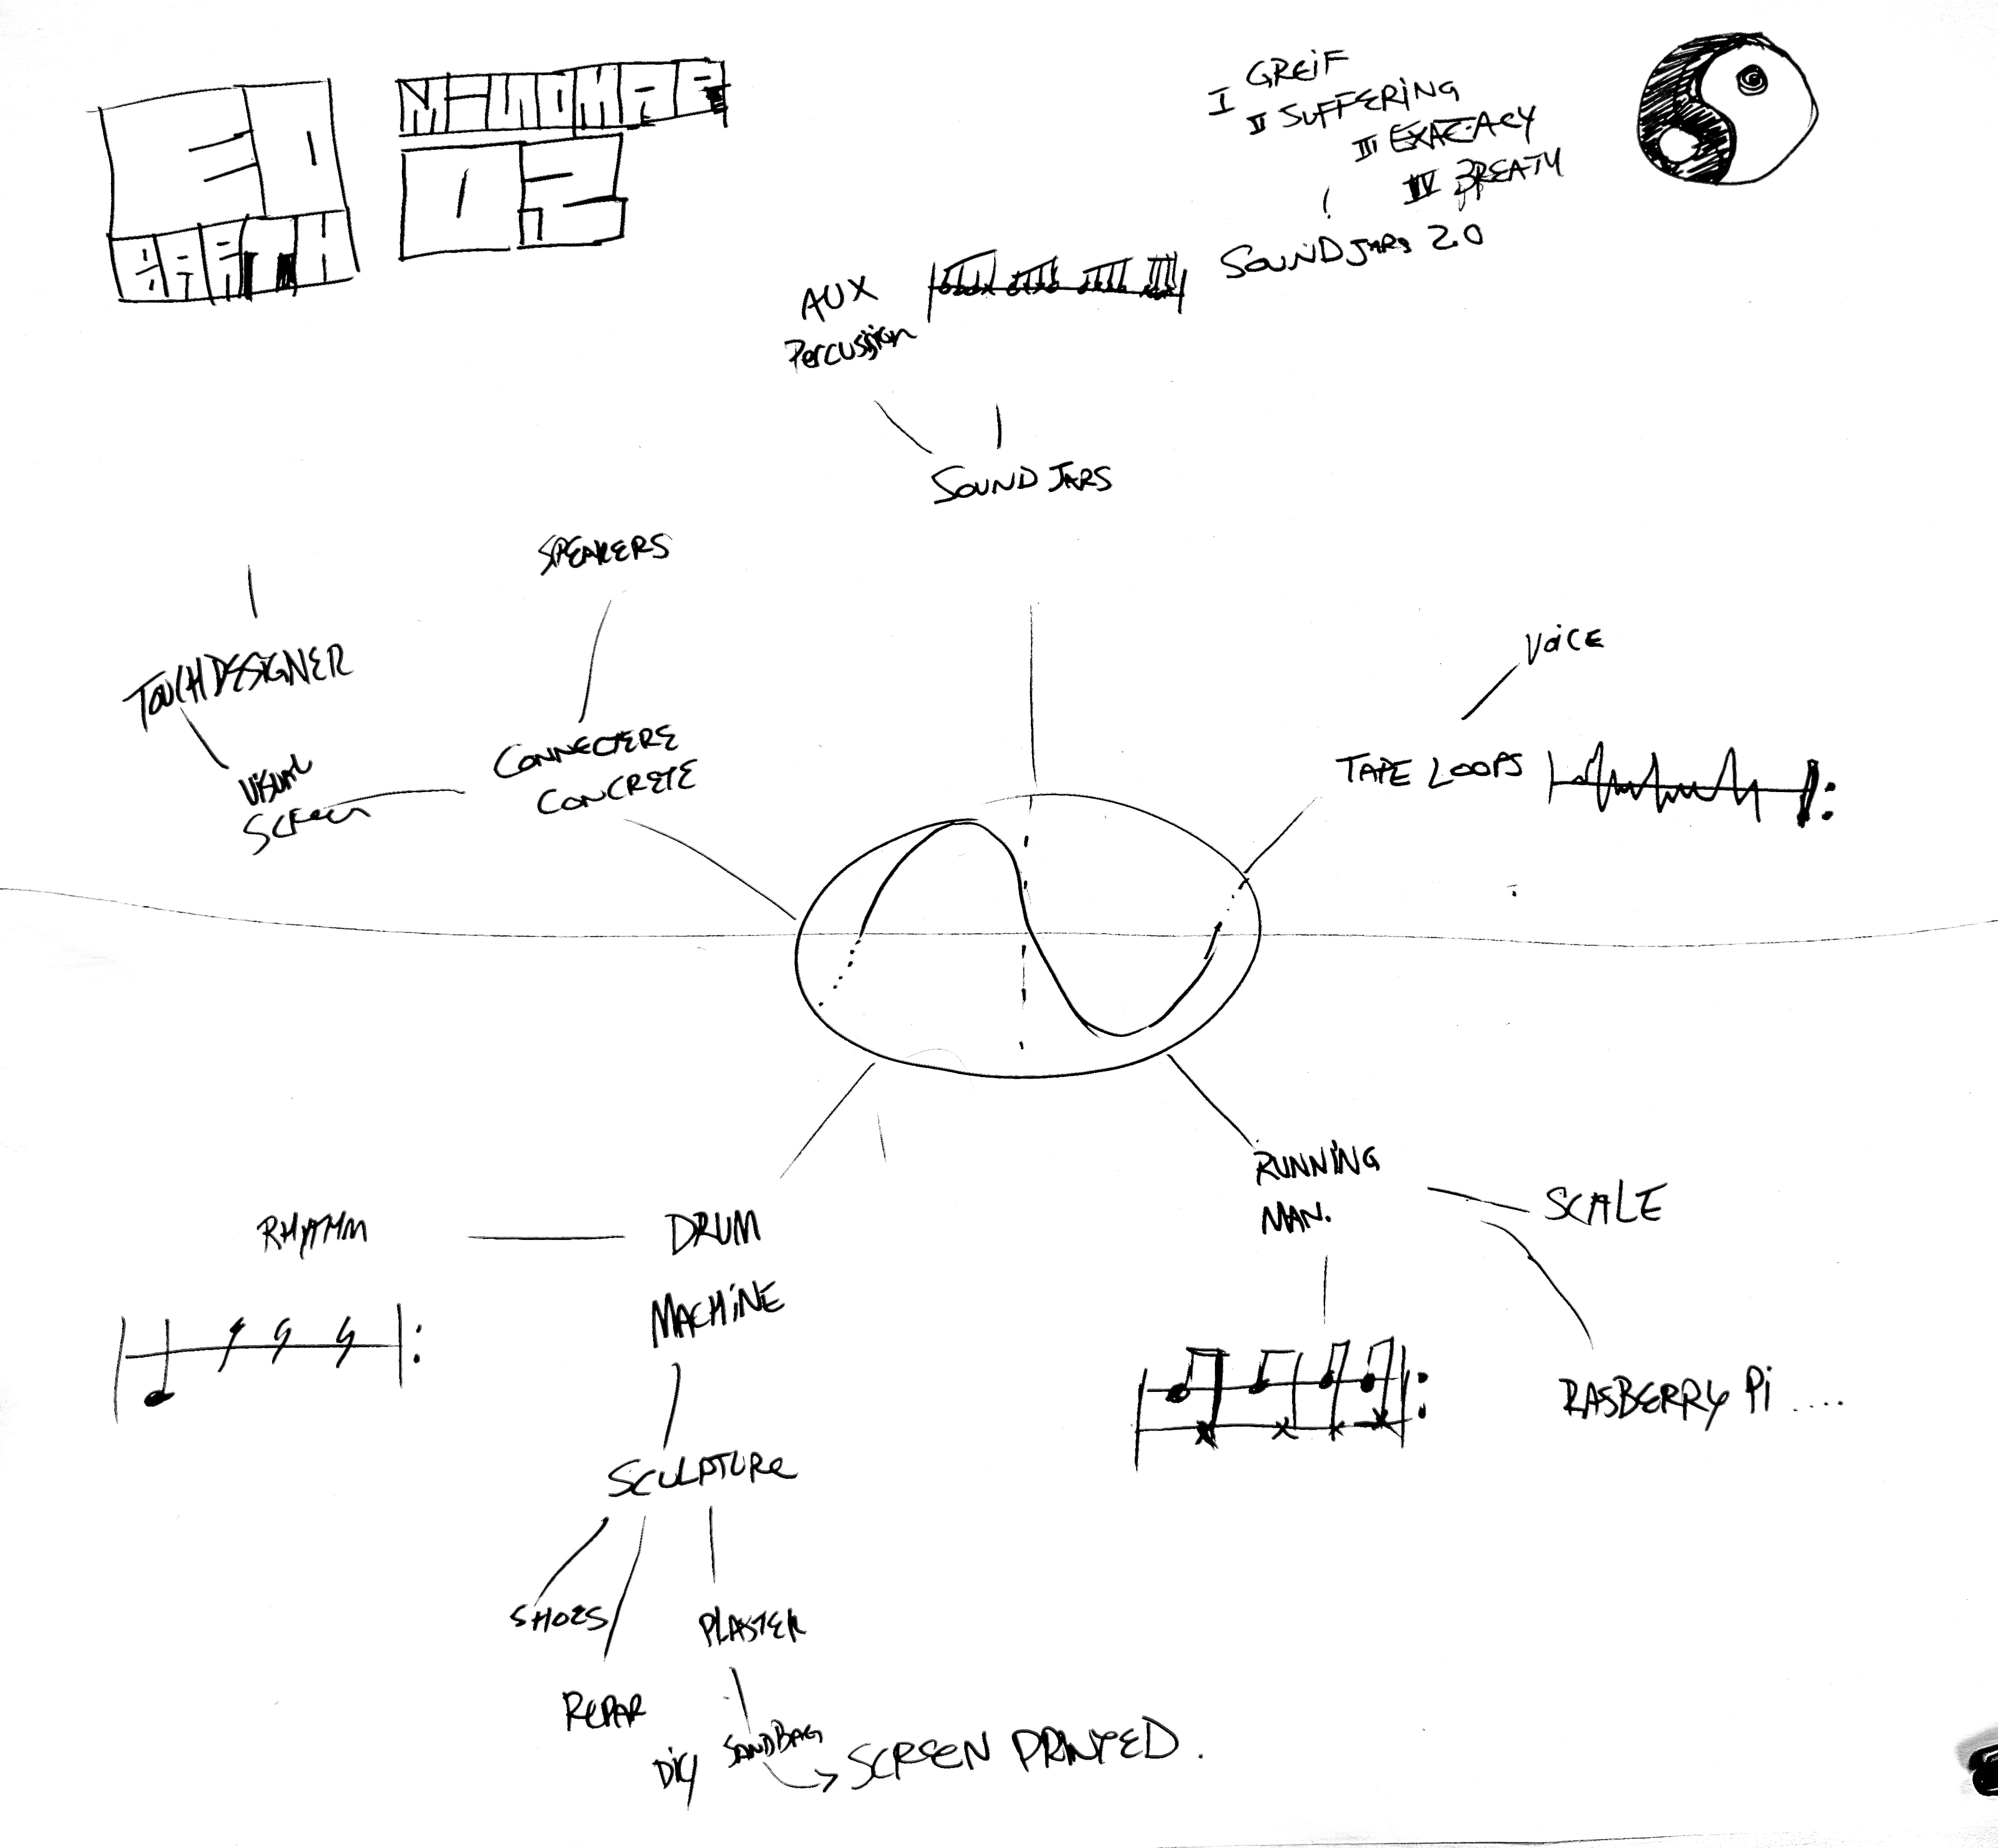 I GREiF
II SUFFERiNG
III
IV
SOUNDJARS 2.0
AUX
Percussion
SOUND JARS
SPEAKERS
VOiCE
TOUCHDESIGNER
VISUAL
SCREEN
CONNECTERE
CONCRETE
TAPE LOOPS
RHYTHM
DRUM
MACHiNE
RUNNiNG
MAN.
SCALE
RASBERRY Pi ....
SCULPTURe
SHOES
PLASTER
RePAR
DiY
SANDBAG
SCREEN PRINTED.